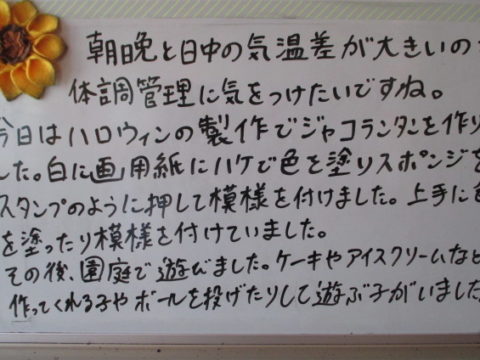 朝晩と日中の気温差が大きいの
体調管理に気をつけたいですね。
今日はハロウィンの製作でジャコランタンを作り
した。白に画用紙にハケで色を塗りスポンジを
スタンプのように押して模様を付けました。上手に色
を塗ったり模様を付けていました。
その後、園庭で遊びました。ケーキやアイスクリームなど
作ってくれる子やボールを投げたりして遊ぶ子がいました